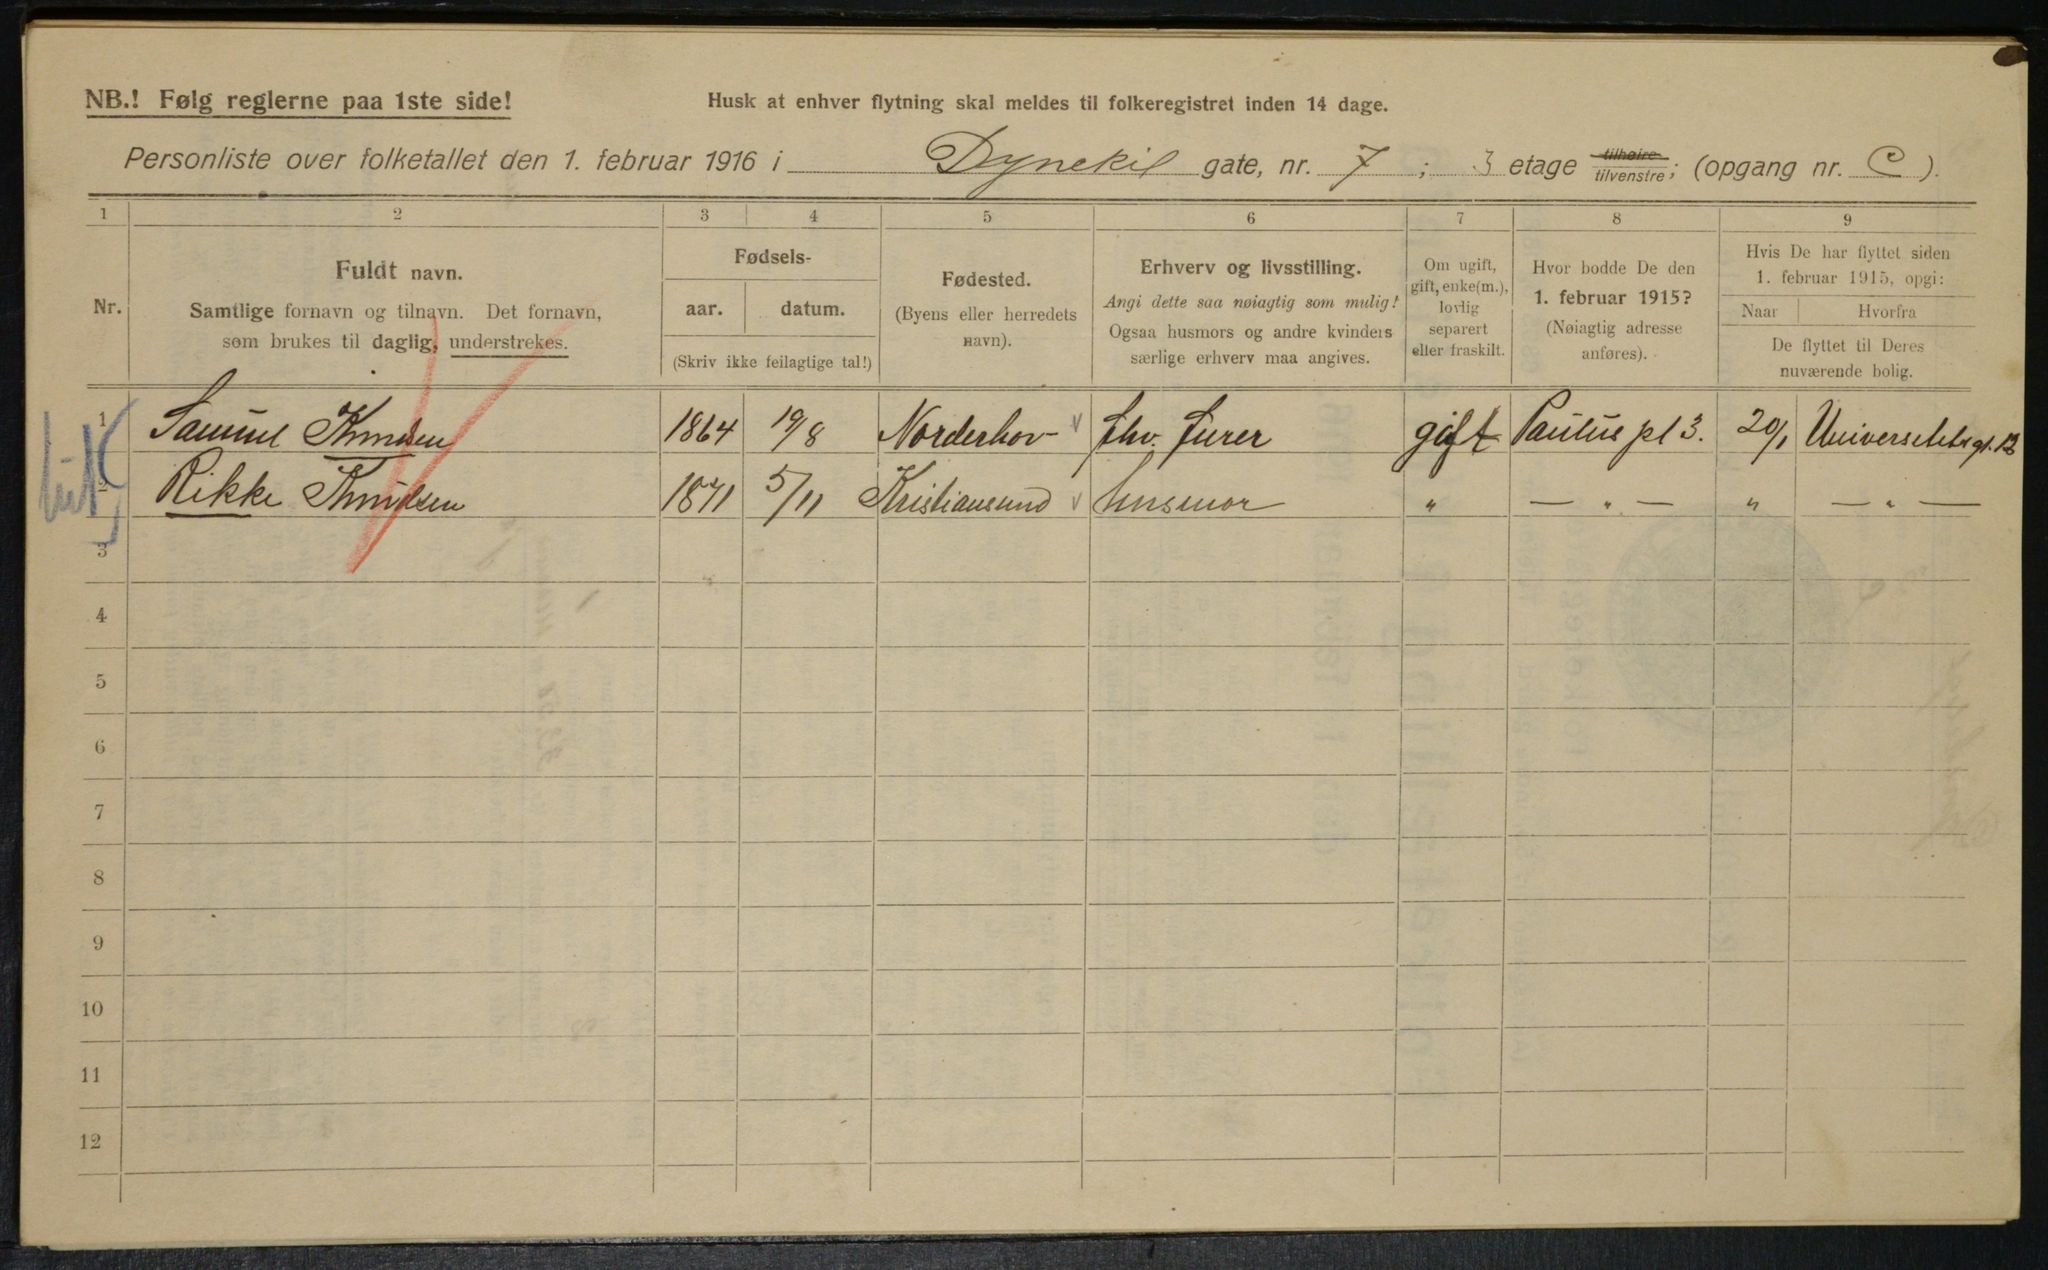 NB.! Følg reglerne paa 1ste side!
Husk at enhver flytning skal meldes til folkeregistret inden 14 dage.
Personliste over folketallet den 1. februar 1916 i Dynekil gate, nr. 7 ; 3 etage tilhøire tilvenstre; (opgang nr. C).
1 2 3 4 5 6 7 8 9
Nr.
Fuldt navn.
Samtlige fornavn og tilnavn. Det fornavn,
som brukes til daglig, understrekes.
Fødsels-
aar. datum.
(Skriv ikke feilagtige tal!)
Fødested.
(Byens eller herredets
navn).
Erhverv og livsstilling.
Angi dette saa nøiagtig som mulig!
Ogsaa husmors og andre kvinders
særlige erhverv maa angives.
Om ugift,
gift, enke(m.),
lovlig
separert
eller fraskilt.
Hvor bodde De den
1. februar 1915?
(Nøiagtig adresse
anføres).
Hvis De har flyttet siden
1. februar 1915, opgi:
Naar Hvorfra
De flyttet til Deres
nuværende bolig.
1 Samuel Knudsen 1864 19/8 Norderhov fhv. furer gift Paulus pl 3. 20/1 Universitetsgt.
2 Rikke Knudsen 1871 5/11 Kristiansund husmor " — " — " — " —
3
4
5
6
7
8
9
10
11
12